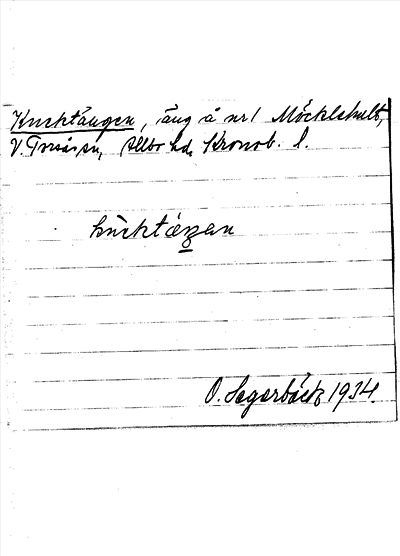 Knektängen, äng å nr 1 Möcklehult,
V. Torsås sn, Allbo hd, Kronob. l.
O. Segerbäck 1934.